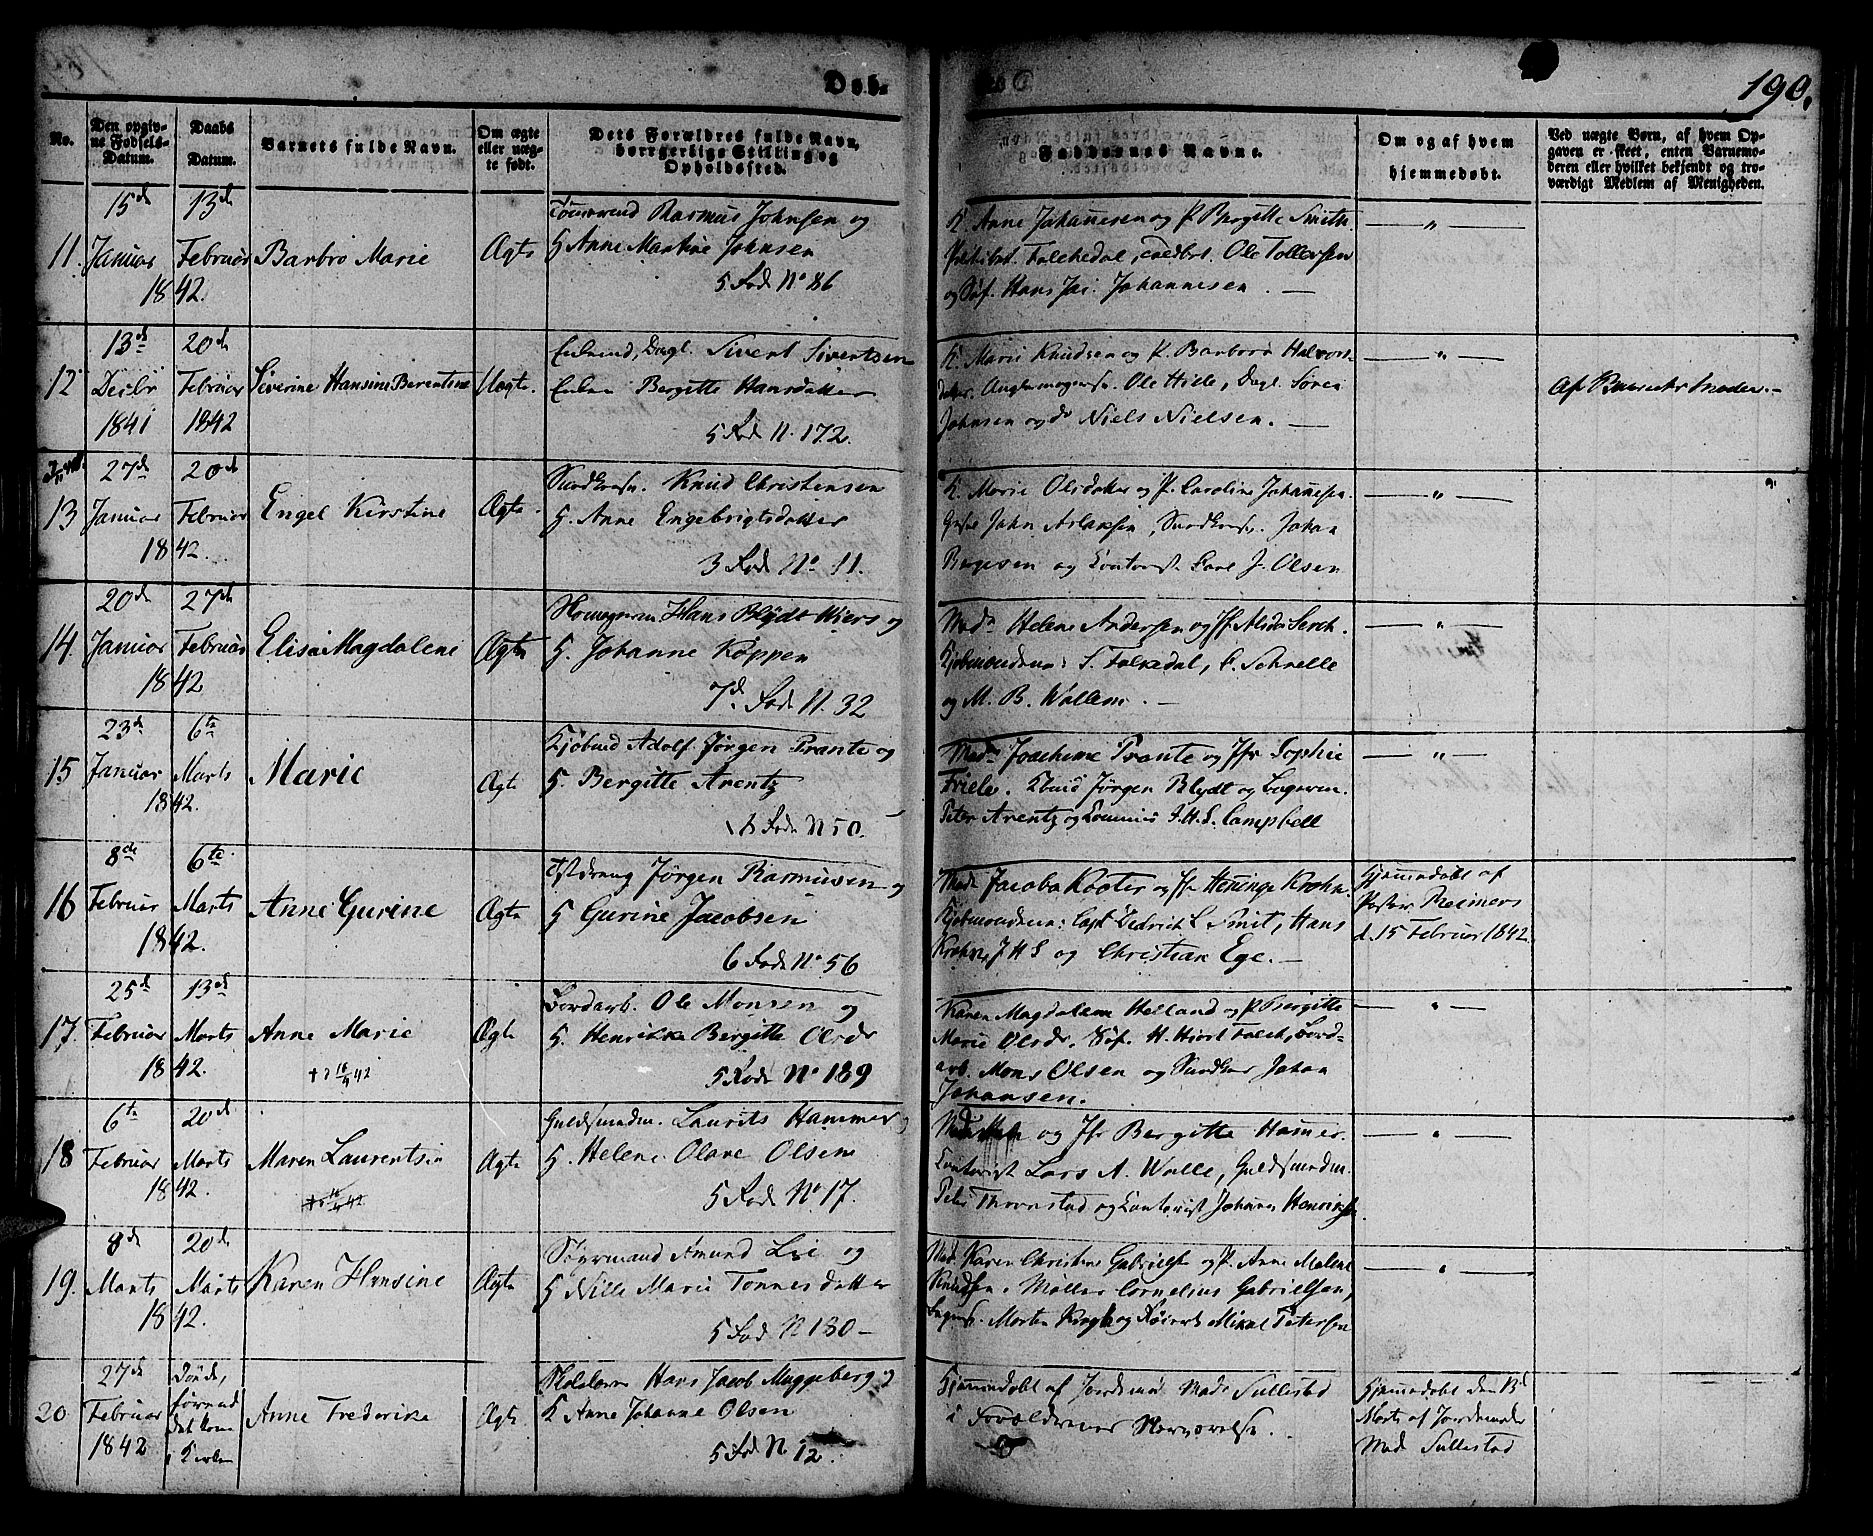 Døb-
190.
No.
Den opgiv-
ne Fødsels-
Datum.
Daabs
Datum.
Barnets fulde Navn.
Om ægte
eller uæg-
te født.
Dets Forældres fulde Navn,
borgerlige Stilling og
Opholdssted.
Faddernes Navne.
Om og af hvem
hjemmedøbt.
Ved uægte Børn, af hvem Op-
gaven er skeet, enten Barnemo-
deren eller hvilket bekjendt og tro-
værdigt Medlem af Menigheden.
11.
15de
Januar
1842.
13de
Februar
Barbro Marie
Ægte
Rasmus Johnsen og
H. Anne Martine Johnsen
5 Rode No 86
K. Anne Johannesen og P. Bergitte Smith.
Falchedal, Ole Tollersen
og Hans Jac. Johannesen. —
— " —
12
13de
Decbr
1841
20de
Februar
1842
Siverine Hansine Berentine
Uægte.
Sivert Sivertsen
Bergitte Hansdatter
5 Rode N. 172.
K. Marie Knudsen og P. Barbara Halvors-
datter. Ole Hille, Dagl. Søren
Johnsen og do Niels Nielsen. —
— " —
Af Barnets Moder. —
13
27de
Januar
1842.
20de
Februar
Engel Kirstine
Ægte.
Knud Christensen
H. Anne Engebrigtsdatter
3 Rode No 11.
K. Marie Olsdatter og P. Caroline Johannesen.
John Aslaksen, Johan
Børgesen og Contorist Carl J. Olsen
— " —
14
20de
Januar
1842
27de
Februar
Elisa Magdalene
Ægte
Hans Blydt Wiers og
H. Johanne Køppen
7de Rode N. 32
Mad. Helene Andersen og Jfr. Alida Lerch.
Kjøbmændene: S. Falkedal, C. Schnelle
og M. B. Wallem. —
— " —
15
23de
Januar
1842.
6te
Marts
Marie
Ægte
Kjøbmd Adolf Jørgen Prante og
H. Bergitte Arentz
Rode N 50.
Mad. Joachime Prante og Jfr Sophie
Friele. Jørgen Blydt og
Peter Arentz og J. H. S. Campbell
— " —
16
8de
Februar
1842.
6te
Marts
Anne Gurine
Ægte
Jørgen Rasmusen og
H. Gurine Jacobsen
6 Rode No 56
Mad. Jacoba Kooter og Jfr Henninge Krohn.
Kjøbmændene: Capt Didrich C. Smit, Hans
Krohn, J H S og Christian Ege. —
Hjemmedøbt af
Pastor Reimers
d. 15 Februar 1842.
17.
25de
Februar
1842.
13de
Marts
Anne Marie
Ægte
Bordarb. Ole Monsen og
H. Henrikke Bergitte Olsdr
5 Rode No 189
Karen Magdalene Helland og P. Bergitte
Marie Olsdr. H. Hjort Falck, Bord-
arb. Mons Olsen og Johan
Johansen.
— " —
18
6te
Februar
1842.
20de
Marts
Maren Laurentsia
Ægte
Guldsmedm. Laurits Hammer og
H. Helene Olave Olsen
5 Rode No 17.
og Jfr Bergitte Hamer.
Contorist Lars A. Walle, Guldsmedm.
Peter Thornstad og Contorist Johannes Henriksen
— " —
19.
8de
Marts
1842.
20de
Marts
Karen Hansine
Ægte
Styrmand Amund Lie og
H. Nille Marie Tønnesdatter
5 Rode N 180 —
Mad. Karen Christine Gabrielsen og P. Anne Malene
Knudsen. Møller Cornelius Gabrielsen,
Morten Krogh og Mikal Petersen
— " —
20
27de
Februar
1842
Døde,
førend
det kom
i Kirken
Anne Frederikke
Ægte
Hans Jacob Muggeberg og
H. Anne Johanne Olsen
5 Rode N 12.
Hjemmedøbt af Jordemod. Mad. Sullestad
i Forældrenes Nærværelse.
Hjemmedøbt den
Marts af Jordemoder
Mad Sullestad